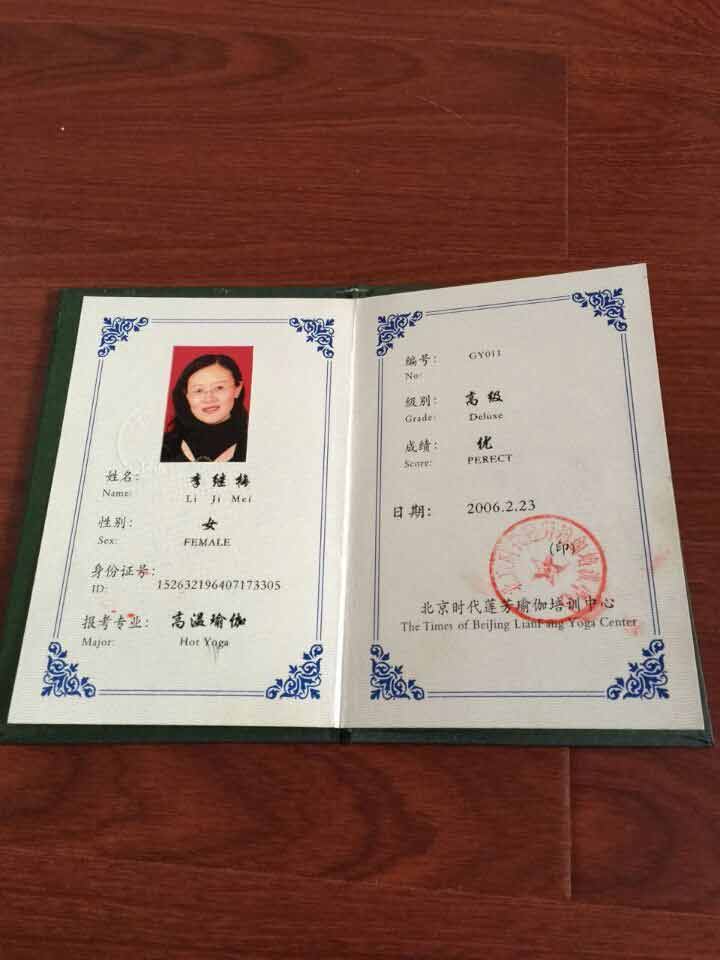 姓名: 李继梅
Name: Li Ji Mei
性别: 女
Sex: FEMALE
身份证号:
ID: 152632196407173305
报考专业: 高温瑜伽
Major: Hot Yoga
编号: GY011
No:
级别: 高级
Grade: Deluxe
成绩: 优
Score: PERECT
日期: 2006.2.23
(印)
北京时代莲芳瑜伽培训中心
The Times of BeiJing LianFang Yoga Center